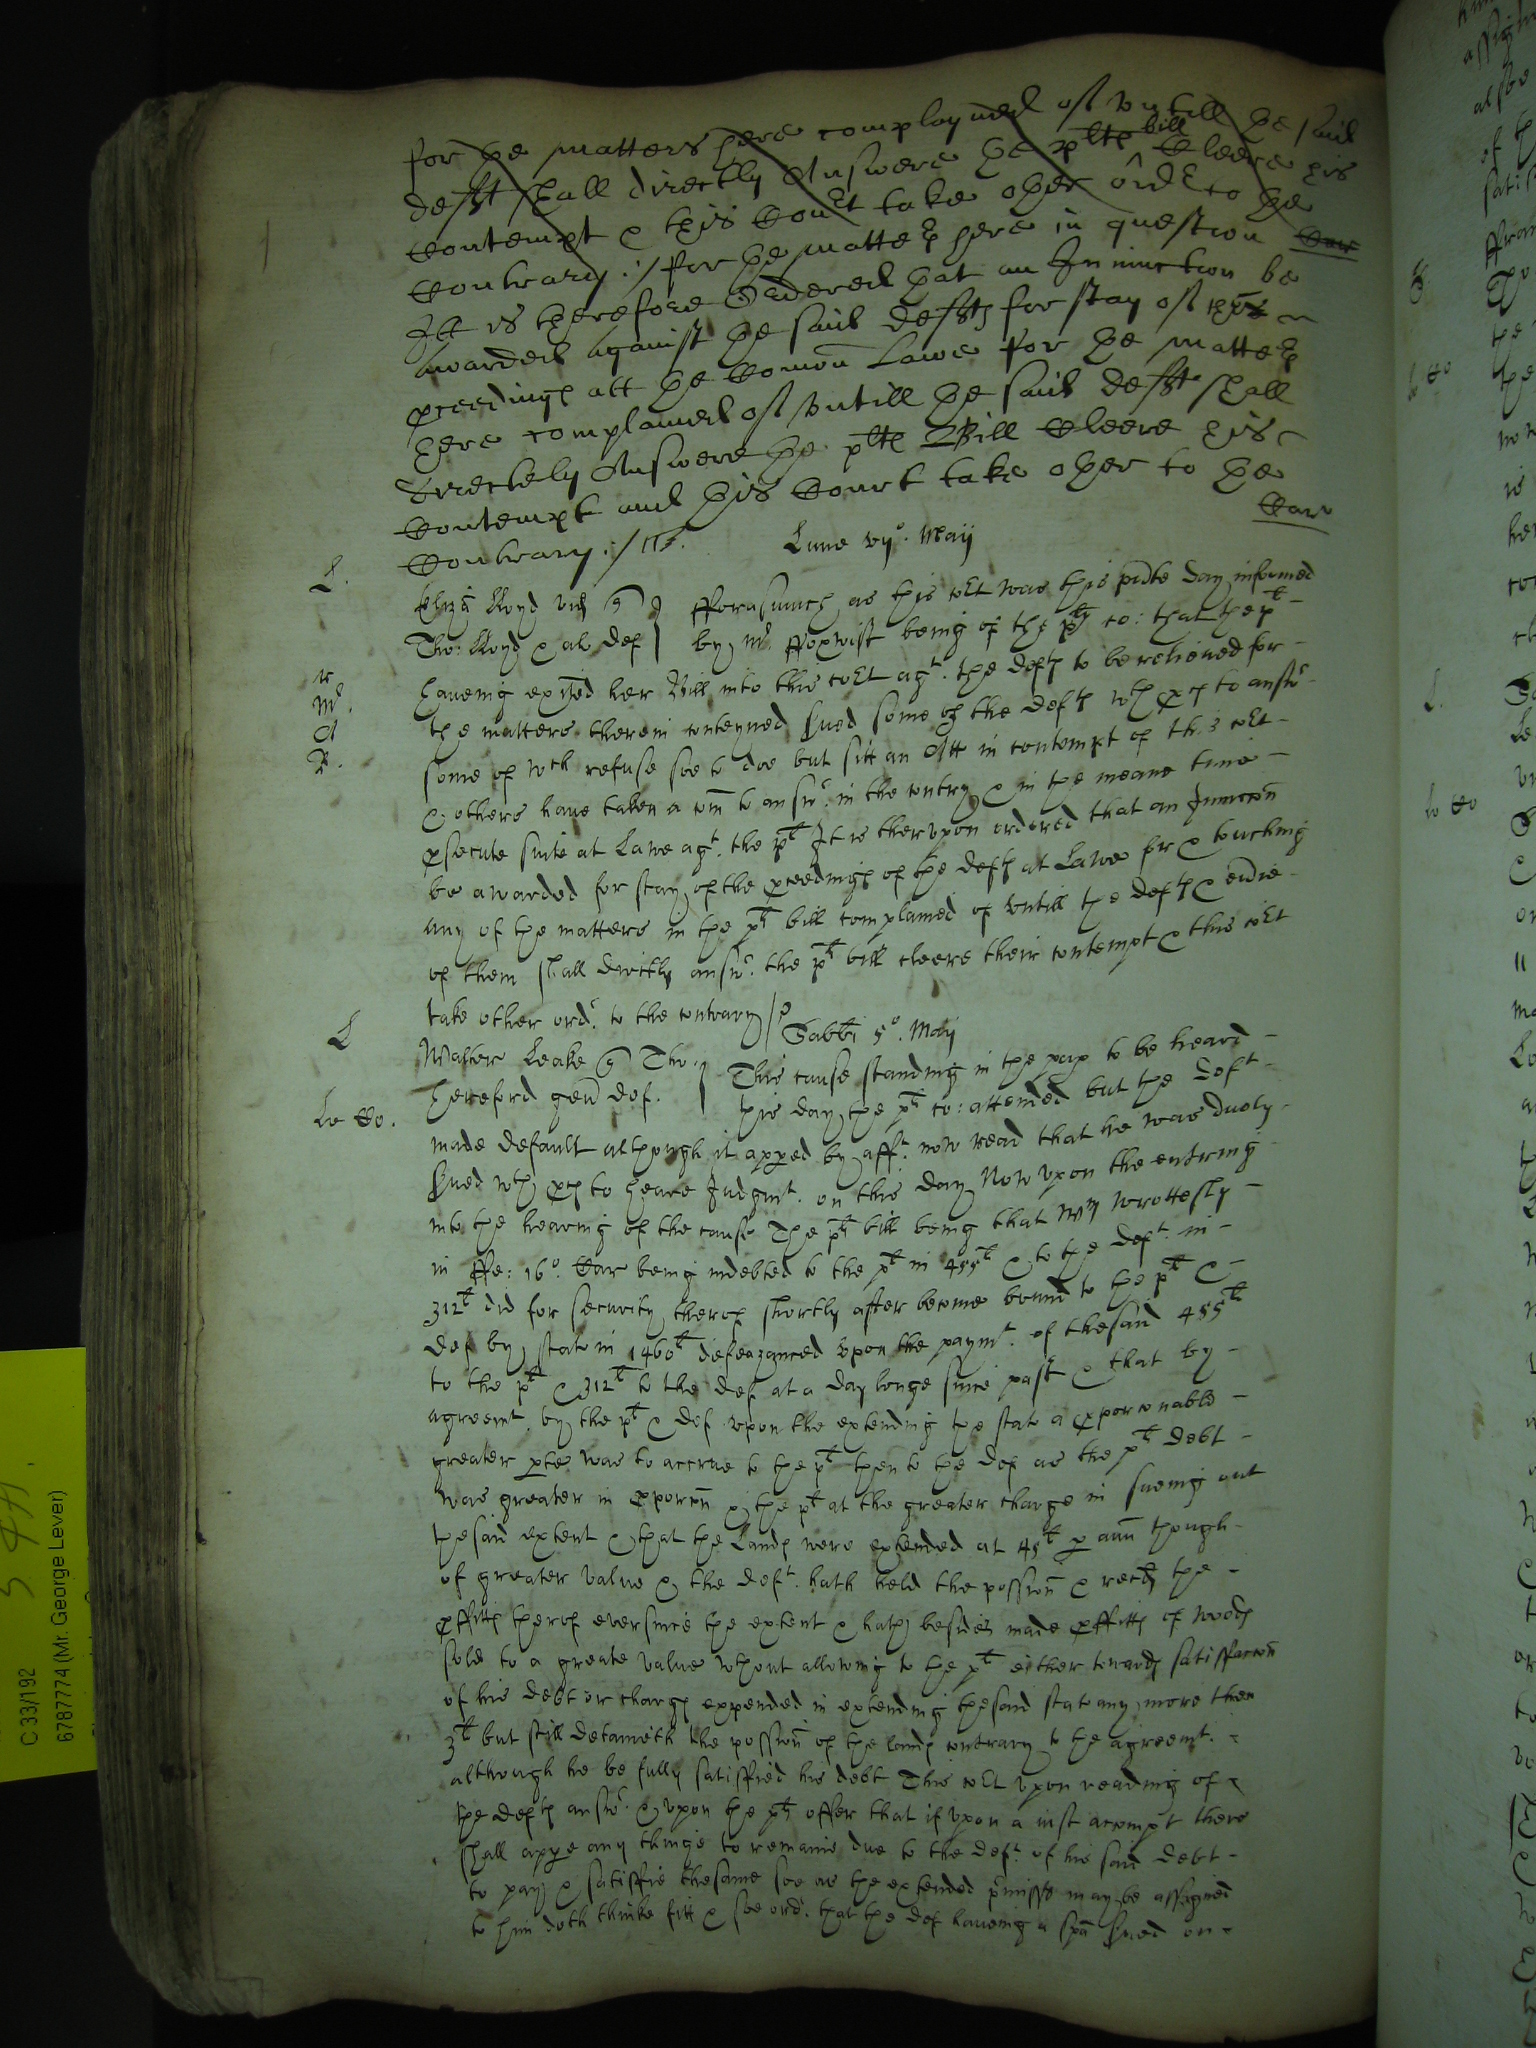 for the matters here complayned off untill the said
defft shall directly Answere the plts bill Cleere his
Contempt & this Court take other order to the
Contrary :/ for the matters here in question Car
It is therefore Ordered that an Iniunction be
Awarded against the said defts for stay off his
pceedings att the Comon Lawe for the matters
here complained off Untill the said defft shall
directely Answere the plts Bill Cleere his
Contempt and this Court take other to the
Contrary :/ Car
Lune vijo. Maij
L.
Eliza Lloyd vid
Tho: Lloyd & al def
fforasmuch as this Cort was this pnte day informed
by Mr ffoxwist being of the plts co: that the plt
haveing exhited her Bill into this Cort agt. the defts to be relieved for
the matters therein conteyned Sued some of the defts wth pces to answr
some of wch refuse soe to doe but sitt an Att in contempt of this Cort
& others have taken a com to answr. in the contry & in the meane time
psecute suite at Lawe agt. the plt It is thereupon ordered that an Iniunccon
be awarded for stay of the pceedings of the defts at Lawe for & touching
any of the matters in the plts bill complained of untill the defts & everie
of them shall dirctly answr. the plts bill cleere their contempt & this Cort
take other ordr. to the contrary
Sabbti 5o. Maij
L
Walter Leake Tho:
Hereford gen def.
This cause standing in the pap to be heard
this day the plts co: attended but the deft
Le Co.
made default although it apped by afft. now read that he was duely
Sued wth pces to heare Judgmt. on this day Now upon the entring
into the hearing of the cause The plts bill being that Wm Wrottesly
in ffe: 16o. Car being indebted to the plt in 455l & to the deft. in
312l did for security therof shortly after become bound to the plt &
def by state in 1460l defeazanced upon the paymt. of the said 455l
to the plt & 312l to the def at a day longe since past & that by
agreemt. by the plt & def upon the extending the state a pporconable
greater pte was to accrue to the plt then to the def as the plts debt
was greater in pporcon & the plt at the greater charge in sueing out
the said extent & that the Lands were extended at 45l p ann though
of greater value & the deft. hath held the possion & recd the
pffitts therof ever since the extent & hath besides made pffitts of woods
sold to a greate value wthout allowing to the plt either towards satisfaccon
of his debt or charges expended in extending the said state any more then
3l but still detaineth the possion of the lands contrary to the agreemt.
although he be fully satisfied his debt This Cort upon reading of
the defts answr. & upon the plts offer that if upon a iust accompt there
shall appe any thinge to remaine due to the deft. of his said debt
to pay & satisfie the same soe as the extended prmisses may be assigned
to him doth thinke fitt & soe ordr. that the def haveing a spa Sued on
C 33/192
6787774 (Mr. George Lever)